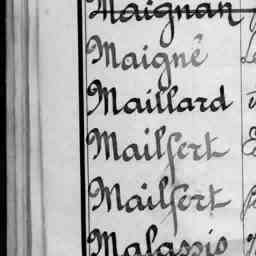 Maignan
Maigné
Maillard
Mailfert
Mailfert
Malassis